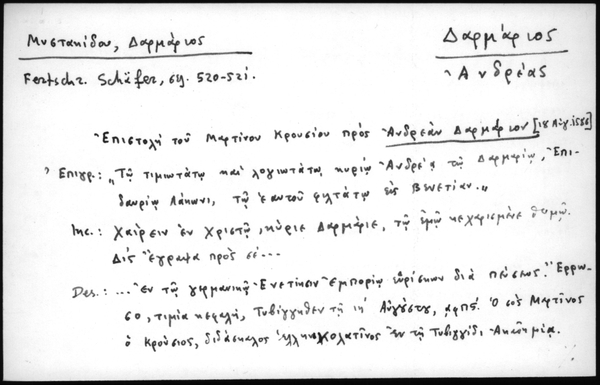 Μυστακίδου, Δαρμάριος
Δαρμάριος
Ἀνδρέας
Festschr. Schäfer, σλ. 520-521.
Ἐπιστολὴ τοῦ Μαρτίνου Κρουσίου πρὸς Ἀνδρέαν Δαρμάριον [18 Αὐγ. 1586]
Ἐπιγρ.: "Τῷ τιμιωτάτῳ καὶ λογιωτάτῳ κυρίῳ Ἀνδρέᾳ τῷ Δαρμαρίῳ, Ἐπι-
δαυρίῳ Λάκωνι, τῷ ἑαυτοῦ φιλτάτῳ εἰς Βενετίαν."
Inc.: Χαίρειν ἐν Χριστῷ, κύριε Δαρμάριε, τῷ ἐμῷ κεχαρισμένε θυμῷ.
Δὶς ἔγραψα πρὸς σέ...
Des.: ... ἐν τῷ γερμανικῷ Ἐνετίησιν Ἐμπορίῳ εὑρίσκων διὰ πεύσεως. Ἔρρω-
σο, τιμία κεφαλή, Τυβίγγηθεν τῇ ιη' Αὐγούστου, ͵αφπϛ'. Ὁ σὸς Μαρτῖνος
ὁ Κρούσιος, διδάσκαλος ἑλληνικολατῖνος ἐν τῇ Τυβιγγίδι Ἀκαδημίᾳ.